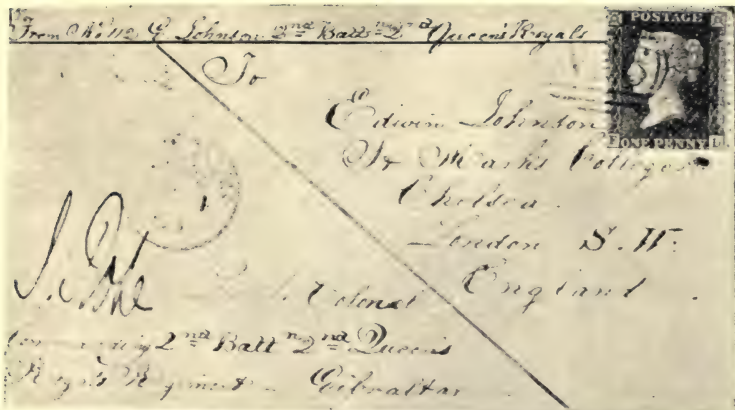 From No 112 G Johnson 2nd Battn 2nd Queen's Royals
To
POSTAGE
Edwin Johnson
ONE PENNY L
St Marks College
Chelsea
London S.W.
England
Colonel
2nd Battn 2nd Queen's
Royals Regiment Gibraltar